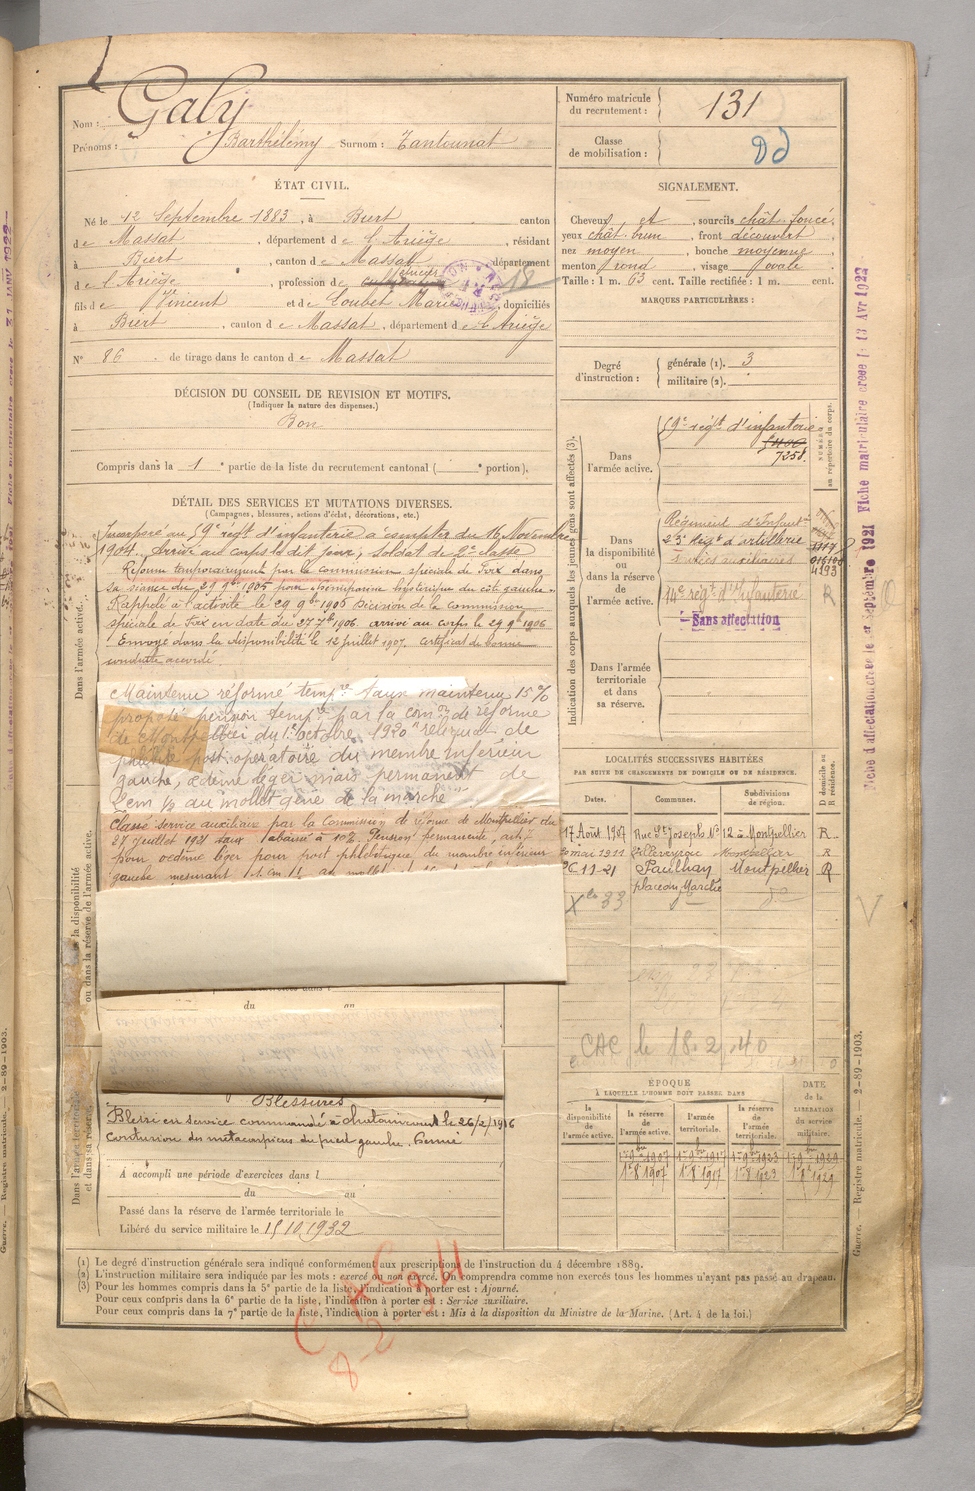 Nom : Galy
Prénoms : Barthélémy Surnom : Tantounat
Numéro matricule du recrutement : 131
Classe de mobilisation :
ÉTAT CIVIL.
Né le 12 Septembre 1883, à Biert canton
de Massat, département de l'Ariège, résidant
à Biert, canton de Massat, département
de l'Ariège, profession de 18
fils de Vincent et de Loubet Marie, domiciliés
à Biert, canton de Massat, département de l'Ariège
N° 86 de tirage dans le canton de Massat
SIGNALEMENT.
Cheveux et, sourcils chât. foncé,
yeux chât. brun, front découvert,
nez moyen, bouche moyenne,
menton rond, visage ovale
Taille : 1 m. 63 cent. Taille rectifiée : 1 m. cent.
MARQUES PARTICULIÈRES :
Degré d'instruction : générale (1). 3
militaire (2).
DÉCISION DU CONSEIL DE REVISION ET MOTIFS.
(Indiquer la nature des dispenses.)
Bon
Compris dans la 1e partie de la liste du recrutement cantonal ( e portion).
DÉTAIL DES SERVICES ET MUTATIONS DIVERSES.
(Campagnes, blessures, actions d'éclat, décorations, etc.)
Incorporé au 59e régt d'infanterie à compter du 16 Novembre
1904. Arrivé au corps le dit jour, soldat de 2e classe
Réformé temporairement par la commission spéciale de Foix dans
sa séance du 29 9bre 1905 pour hystérique du côté gauche.
Rappelé à l'activité le 29 9bre 1906 Décision de la commission
spéciale de Foix en date du 27 7bre 1906 arrivé au corps le 29 9bre 1906
Envoyé dans la disponibilité le 12 juillet 1907. certificat de bonne
conduite accordé.
Maintenu réformé tempre taux maintenu 15%
proposé pension tempre par la comon de réforme
de Montpellier du 1er octobre 1920 "reliquat de
phlébite post-opératoire du membre inférieur
gauche, œdème léger mais permanent de
1 cm ½ au mollet gêne de la marche"
Classé service auxiliaire par la Commission de réforme de Montpellier du
28 Juillet 1921 taux abaissé à 10% Pension permanente, art 7
pour œdème léger pour post phlébitique du membre inférieur
gauche mesurant
du au
Blessures
Blessé en service commandé à le 26/2/1916
contusion du métacarpiens du pied gauche.
A accompli une période d'exercices dans l
du au
Passé dans la réserve de l'armée territoriale le
Libéré du service militaire le 15.10.1932
Dans l'armée active.
Dans la disponibilité ou dans la réserve de l'armée active.
Dans l'armée territoriale et dans sa réserve.
Indication des corps auxquels les jeunes gens sont affectés (3).
NUMÉRO au répertoire du corps.
Dans l'armée active. 59e régt d'infanterie
7258.
Dans la disponibilité ou dans la réserve de l'armée active.
Régiment d'Infantie
d'artillerie
auxiliaires
14e régt d'Infanterie R
Sans affectation
Dans l'armée territoriale et dans sa réserve.
LOCALITÉS SUCCESSIVES HABITÉES
PAR SUITE DE CHANGEMENTS DE DOMICILE OU DE RÉSIDENCE.
Dates. Communes. Subdivisions de région. D domicile ou R résidence.
17 Août 1907 Rue St Joseph No 12 à Montpellier R
mai 1911 Villeveyrac Montpellier R
26-11-21 Paulhan Montpellier R
place du Marché
CAC le 18.2.40
ÉPOQUE
À LAQUELLE L'HOMME DOIT PASSER DANS
la disponibilité de l'armée active. la réserve de l'armée active. l'armée territoriale. la réserve de l'armée territoriale. DATE de la LIBÉRATION du service militaire.
1er 9bre 1907 1er 9bre 1917 1er 9bre 1923 1er 9bre 1929
1er 8 1907 1er 8 1917 1er 8 1923 1er 8 1929
(1) Le degré d'instruction générale sera indiqué conformément aux prescription de l'instruction du 4 décembre 1889.
(2) L'instruction militaire sera indiquée par les mots : exercé ou non exercé. On comprendra comme non exercés tous les hommes n'ayant pas passé au drapeau.
(3) Pour les hommes compris dans la 5e partie de la liste, l'indication à porter est : Ajourné.
Pour ceux compris dans la 6e partie de la liste, l'indication à porter est : Service auxiliaire.
Pour ceux compris dans la 7e partie de la liste, l'indication à porter est : Mis à la disposition du Ministre de la Marine. (Art. 4 de la loi.)
Guerre. — Registre matricule. — 2-89-1903.
Fiche d'affectation créée le 1er Septembre 1921 Fiche matriculaire créée le 13 Avr 1922